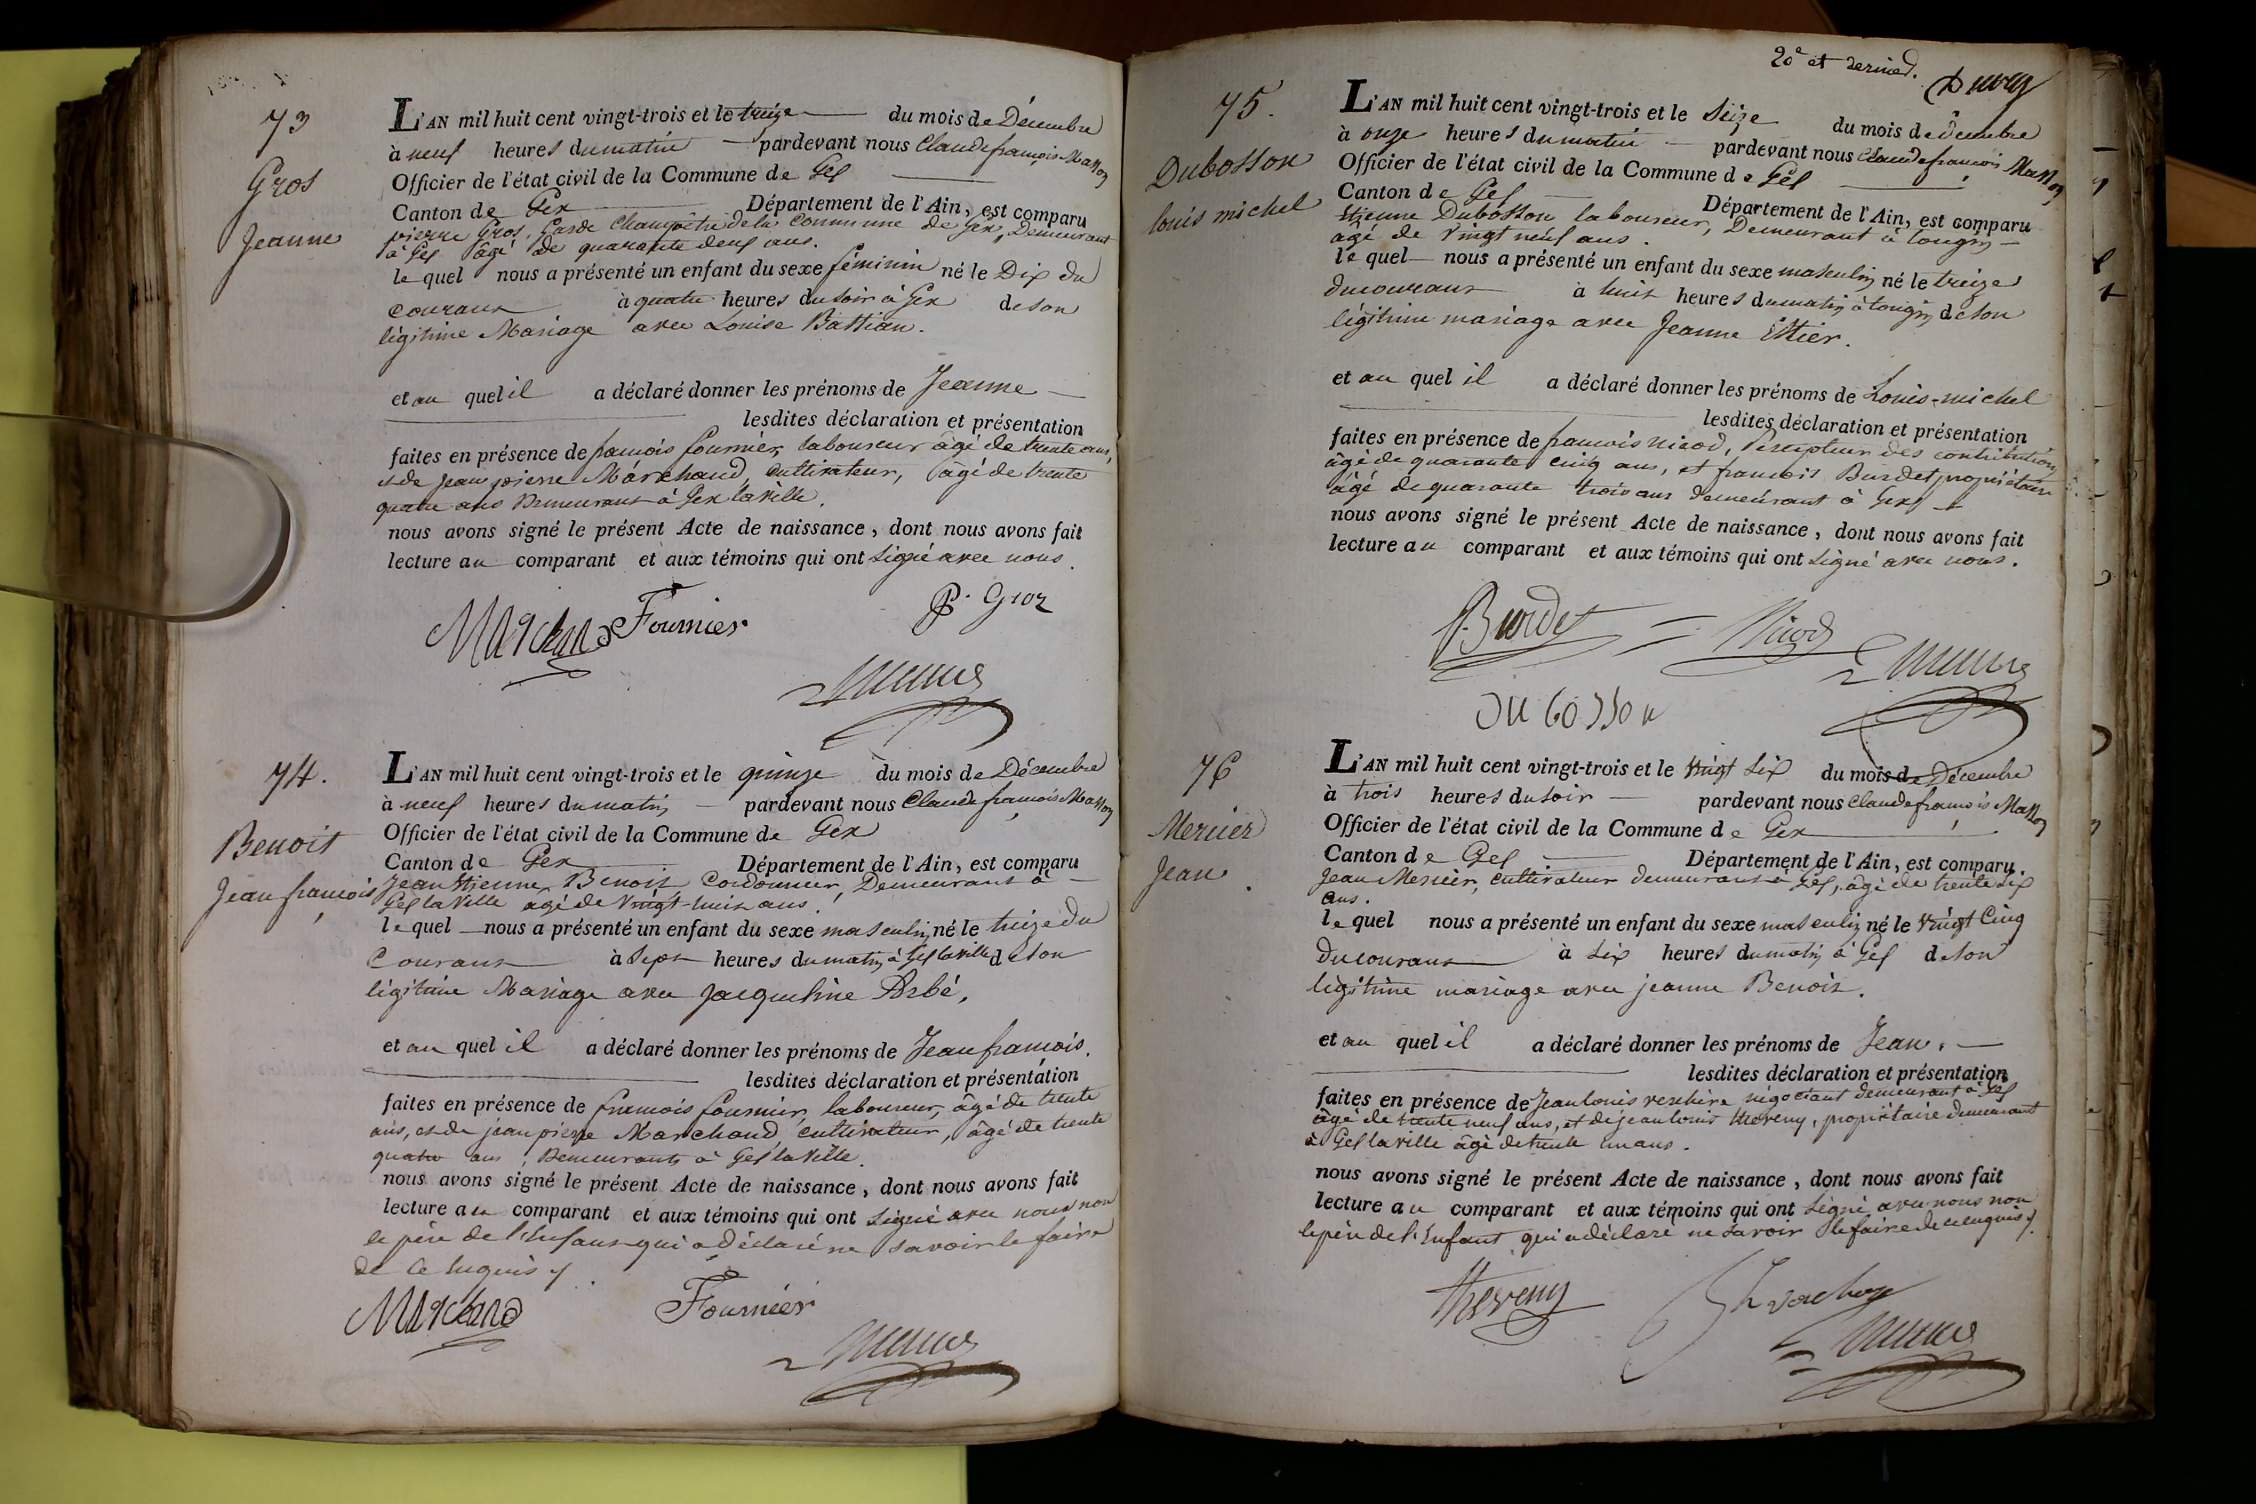 73
Gros
Jeanne
L'AN mil huit cent vingt-trois et le treize du mois de Décembre
à neuf heures du matin pardevant nous Claude françois Masson
Officier de l'état civil de la Commune de Gex
Canton de Gex Département de l'Ain, est comparu
pierre Gros, Garde Champêtre de la Commune de Gex, Demeurant
à Gex âgé de quarante deux ans.
le quel nous a présenté un enfant du sexe féminin né le Dix du
courant à quatre heures du soir à Gex de son
légitime Mariage avec Louise Battian.
et au quel il a déclaré donner les prénoms de Jeanne
lesdites déclaration et présentation
faites en présence de françois fournier, laboureur âgé de trente ans,
et de jean pierre Marchand, cultivateur, âgé de trente
quatre ans Demeurant à Gex la ville.
nous avons signé le présent Acte de naissance, dont nous avons fait
lecture au comparant et aux témoins qui ont signé avec nous.
Marchand Fournier P. Groz
74.
Benoit
Jean françois
L'AN mil huit cent vingt-trois et le quinze du mois de Décembre
à neuf heures du matin pardevant nous Claude françois Masson
Officier de l'état civil de la Commune de Gex
Canton de Gex Département de l'Ain, est comparu
Jean Etienne Benoit Cordonnier, Demeurant à
Gex la Ville agé de vingt-huit ans.
le quel nous a présenté un enfant du sexe masculin né le treize du
Courant à sept heures du matin à Gex la ville de son
légitime Mariage avec Jacqueline Arbé.
et au quel il a déclaré donner les prénoms de Jean françois.
lesdites déclaration et présentation
faites en présence de françois fournier, laboureur, âgé de trente
ans, et de jean pierre Marchand, cultivateur, âgé de trente
quatre ans, Demeurants à Gex la Ville.
nous avons signé le présent Acte de naissance, dont nous avons fait
lecture au comparant et aux témoins qui ont signé avec nous non
le père de l'Enfant qui a déclaré ne savoir le faire
de ce enquis
Marchand Fournier
20e et dernier.
75.
Dubosson
louis michel
L'AN mil huit cent vingt-trois et le Seize du mois de décembre
à onze heures du matin pardevant nous Claude françois Masson
Officier de l'état civil de la Commune de Gex
Canton de Gex Département de l'Ain, est comparu
Etienne Dubosson laboureur, Demeurant à tougin
âgé de vingt neuf ans.
le quel nous a présenté un enfant du sexe masculin né le treize
du courant à huit heures du matin à tougin de son
légitime mariage avec Jeanne Ethier.
et au quel il a déclaré donner les prénoms de Louis-michel
lesdites déclaration et présentation
faites en présence de francois nicod, Percepteur des contributions
âgé de quarante cinq ans, et francois Burdet propriétaire
âgé de quarante trois ans demeurant à Gex
nous avons signé le présent Acte de naissance, dont nous avons fait
lecture au comparant et aux témoins qui ont signé avec nous.
Burdet Nicod
Dubosson
76
Mercier
Jean.
L'AN mil huit cent vingt-trois et le vingt six du mois de Décembre
à trois heures du soir pardevant nous Claude françois Masson
Officier de l'état civil de la Commune de Gex
Canton de Gex Département de l'Ain, est comparu.
Jean Mercier, cultivateur demeurant à Gex, âgé de trente six
ans.
le quel nous a présenté un enfant du sexe masculin né le vingt Cinq
du courant à six heures du matin à Gex de son
légitime mariage avec jeanne Benoit.
et au quel il a déclaré donner les prénoms de Jean.
lesdites déclaration et présentation
faites en présence de Jean louis négociant demeurant à Gex
âgé de trente neuf ans, et de jean louis thoveny, propriétaire demeurant
à Gex la ville âgé de trente un ans.
nous avons signé le présent Acte de naissance, dont nous avons fait
lecture au comparant et aux témoins qui ont signé avec nous non
le père de l'Enfant qui a déclaré ne savoir le faire de ce enquis
thoveny